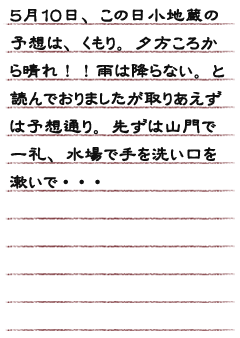 5月10日、この日小地蔵の
予想は、くもり。夕方ころか
ら晴れ！！雨は降らない。と
読んでおりましたが取りあえず
は予想通り。先ずは山門で
一礼、水場で手を洗い口を
漱いで・・・